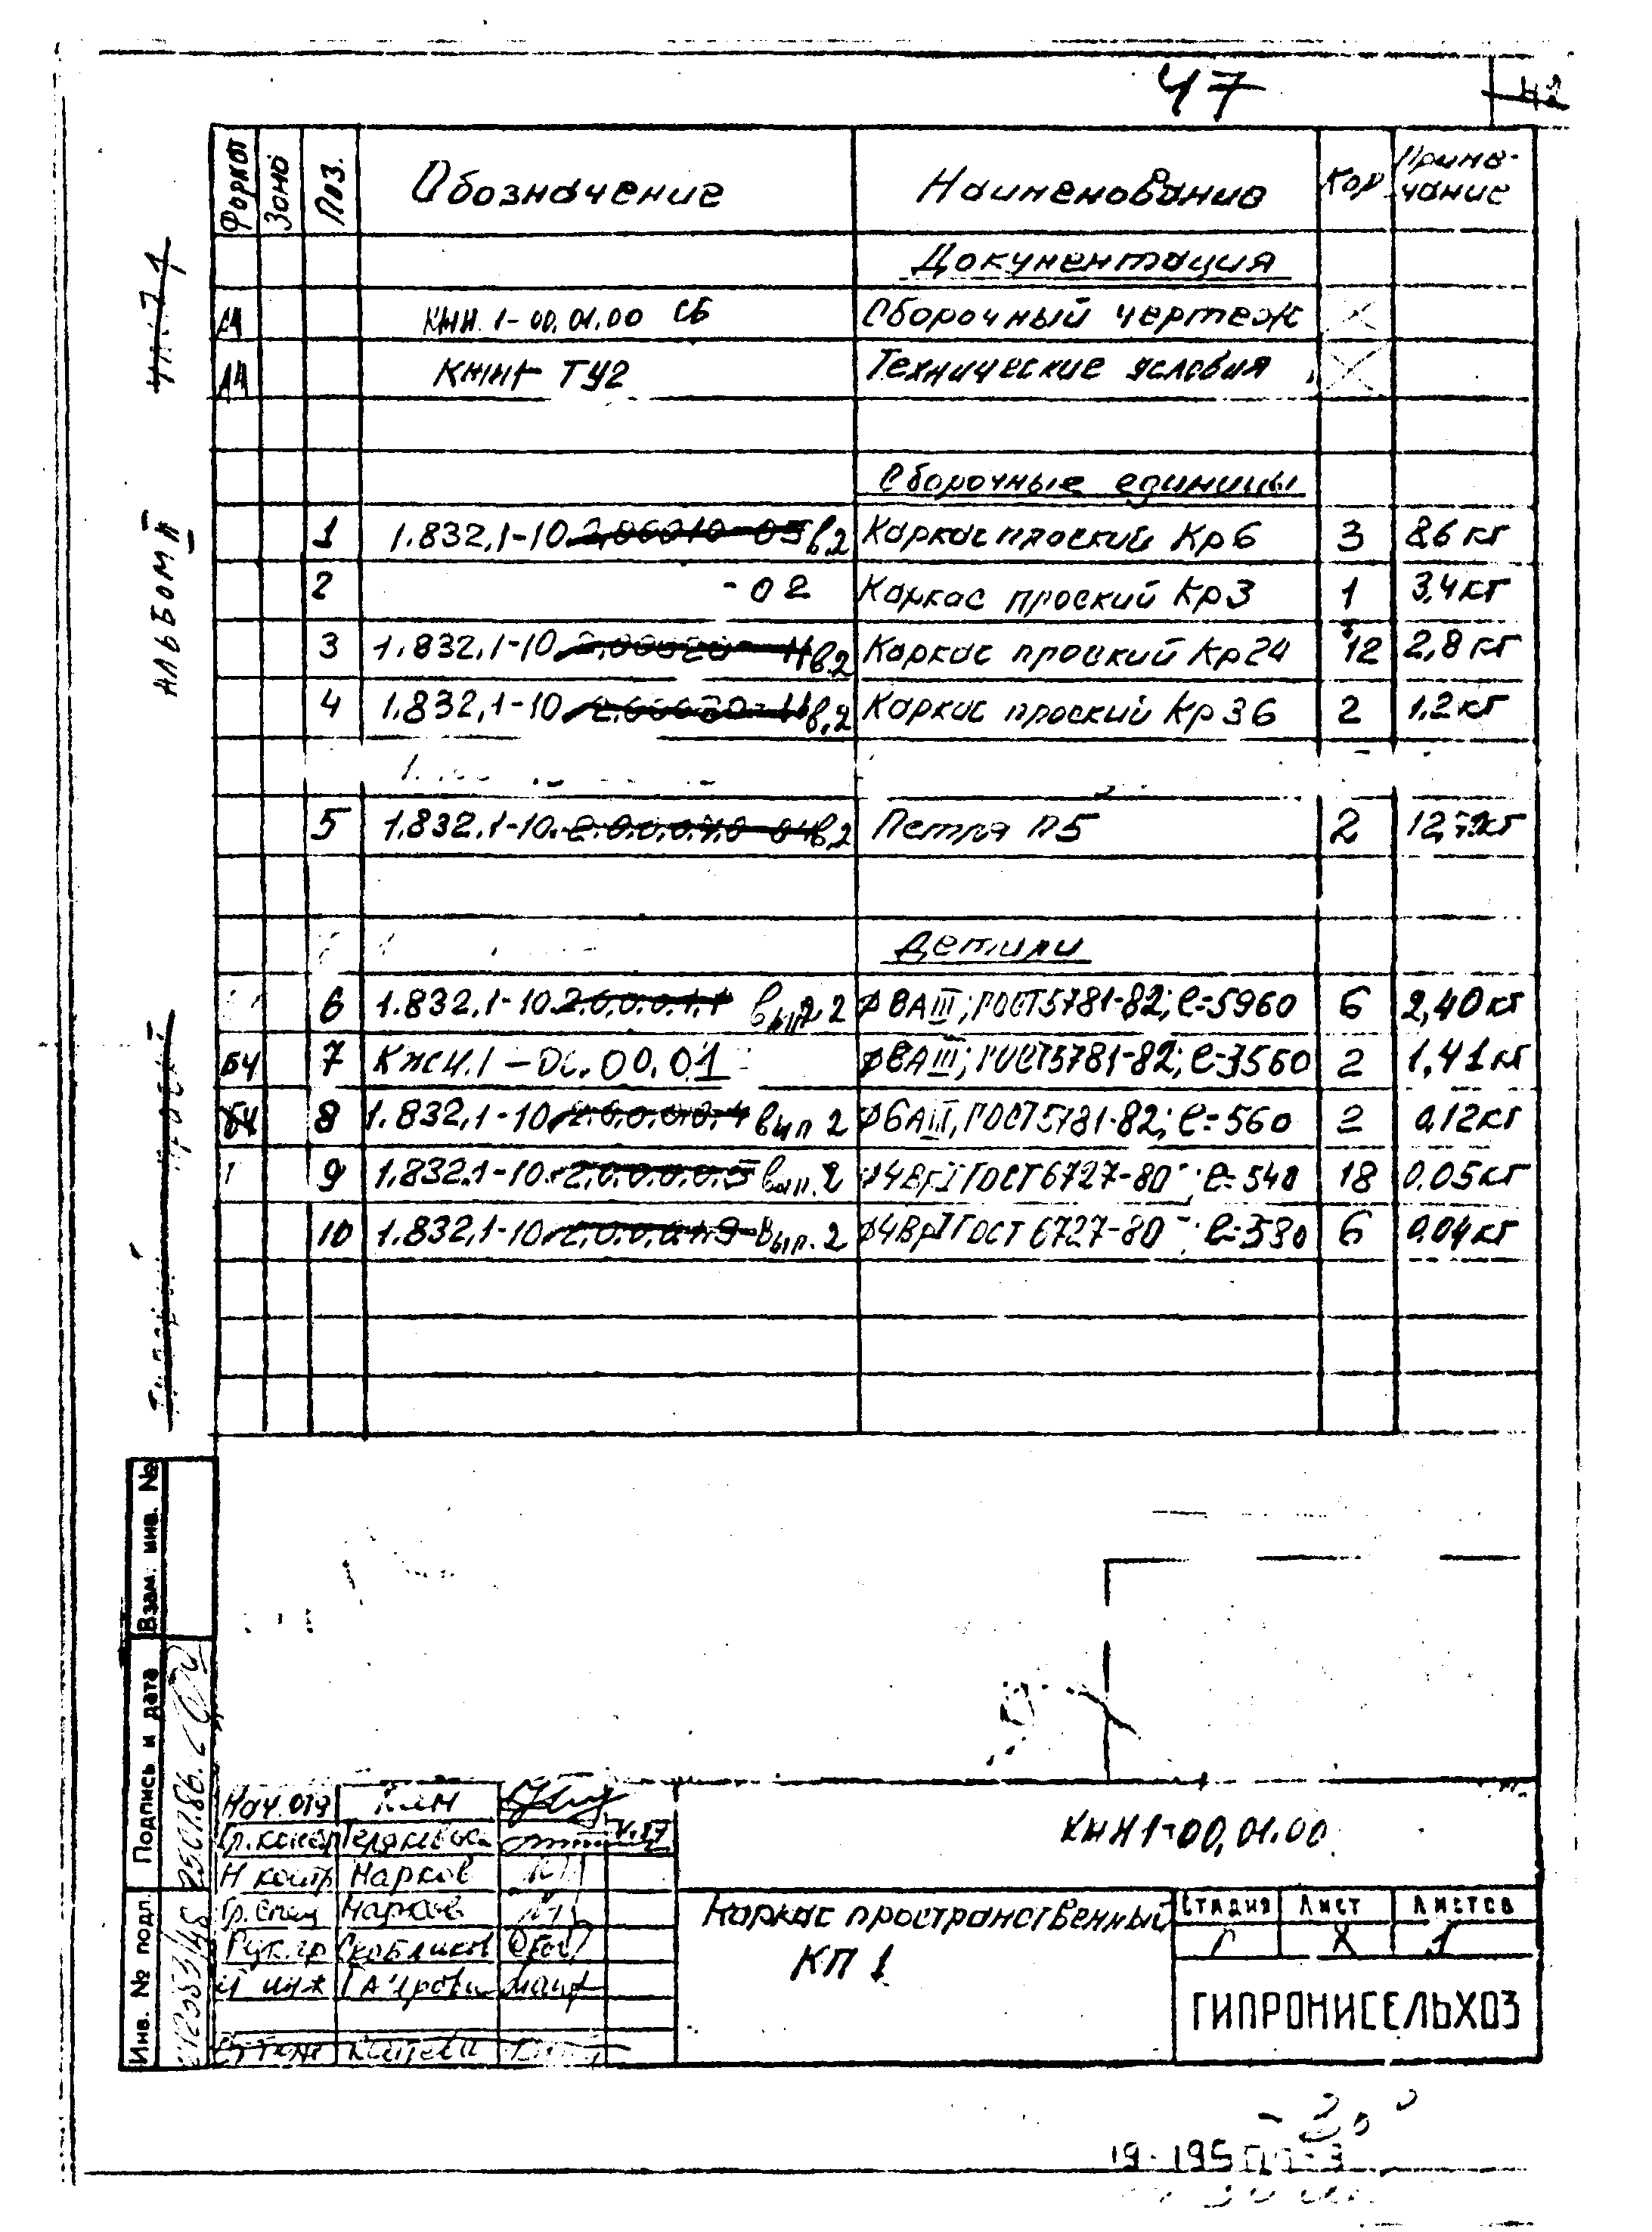 47
42
Формат Зона Поз. Обозначение Наименование Кол Приме-
чание
Документация
А4 КЖИ.1-00.01.00 СБ Сборочный чертеж
А4 КЖИ1 ТУ2 Технические условия
Сборочные единицы
1 1.832.1-10 в.2 Каркас плоский Кр6 3 8,6 кг
2 -02 Каркас плоский Кр3 1 3,4 кг
3 1.832.1-10 в.2 Каркас плоский Кр24 12 2,8 кг
4 1.832.1-10 в.2 Каркас плоский Кр36 2 1,2 кг
5 1.832.1-10. в.2 Петля П5 2
Детали
6 1.832.1-10. вып. 2 ф8АIII; ГОСТ5781-82; ℓ=5960 6 2,40 кг
БЧ 7 КЖИ.1-00.00.01 ф8АIII; ГОСТ5781-82; ℓ=3560 2 1,41 кг
БЧ 8 1.832.1-10. вып 2 ф6АIII, ГОСТ5781-82; ℓ=560 2 0,12 кг
9 1.832.1-10. вып. 2 ф4ВрI ГОСТ 6727-80 ℓ=540 18 0.05 кг
10 1.832.1-10. вып. 2 ф4ВрI ГОСТ 6727-80 ℓ=380 6 0.04 кг
АЛЬБОМ II
Взам. инв. №
Подпись и дата
Инв. № подл.
Нач. отд Ким
Гл. констр
Н контр Марков
Гл. спец Марков
Рук. гр Скобликов
КЖИ1-00.01.00
Каркас пространственный
КП 1
Стадия Лист Листов
Р 1
ГИПРОНИСЕЛЬХОЗ